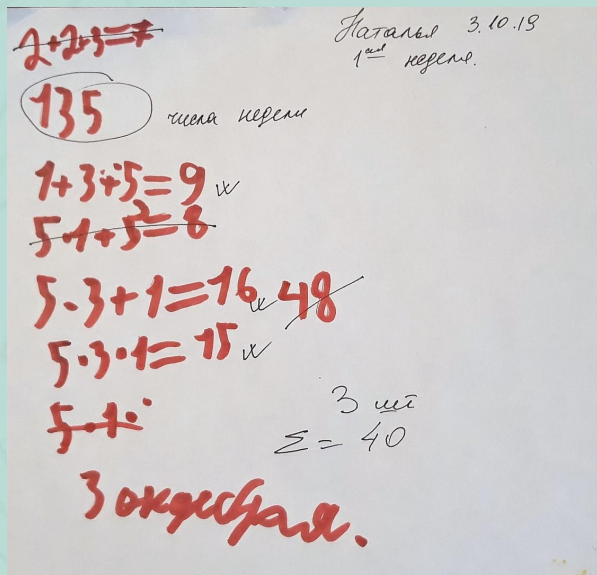 2+2+3=7
Наталья 3.10.19
1ая неделя.
135
числа недели
1+3+5=9
5·1+5²=8
5·3+1=16 48
5·3·1=15
5·1·
3 шт
Σ=40
3 октебрая.